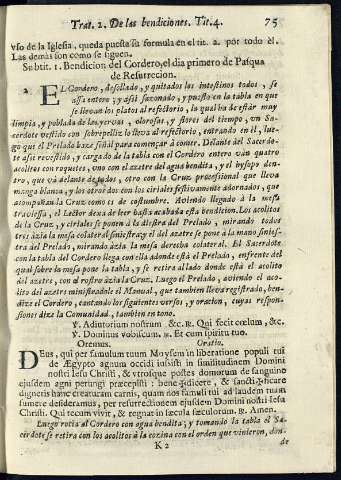 Trat. 2. De las bendiciones. Tit. 4. 75
vso de la Iglesia, queda puesta su formula en el tit. 2. por todo èl.
Las demàs son como se siguen.
Subtit. 1. Bendicion del Cordero, el dia primero de Pasqua
de Resurrecion.
2. EL Cordero, desollado, y quitados los intestinos todos, se
assa entero; y assi sazonado, y puesto en la tabla en que
se llevan los platos al refectorio, la qual ha de estar muy
limpia, y poblada de los yervas, olorosas, y flores del tiempo, vn Sa-
cerdote vestido con sobrepelliz lo lleva al refectorio, entrando en èl, lue-
go que el Prelado haze señal para començar à comer. Delante del Sacerdo-
te assi revestido, y cargado de la tabla con el Cordero entero vàn quatro
acolitos con roquetes, vno con el azetre del agua bendita, y el hysopo den-
tro, que và delante de todos, otro con la Cruz processional que lleva
manga blanca, y los otros dos con los ciriales festivamente adornados, que
acompañan la Cruz como es de costumbre. Aviendo llegado à la mesa
traviessa, el Lector dexa de leer hasta acabada esta bendicion. Los acolitos
de la Cruz, y ciriales se ponen à la diestra del Prelado, mirando todos
tres àzia la mesa colateral siniestra: y el del azetre se pone à la mano sinies-
tra del Prelado, mirando àzia la mesa derecha colateral. El Sacerdote
con la tabla del Cordero llega con ella adonde està el Prelado, enfrente del
qual sobre la mesa pone la tabla, y se retira al lado donde està el acolito
del azetre, con el rostro àzia la Cruz. Luego el Prelado, aviendo el aco-
lito del azetre ministradole el Manual, que tambien lleva registrado, ben-
dize el Cordero, cantando los siguientes versos, y oracion, cuyas respon-
siones dize la Comunidad, tambien en tono.
℣. Adiutorium nostrum &c. ℟. Qui fecit cœlum, &c.
℣. Dominus vobiscum. ℟. Et cum spiritu tuo.
Oremus. Oratio.
DEus, qui per famulum tuum Moysem in liberatione populi tui
de Ægypto agnum occidi iussisti in similitudinem Domini
nostri Iesu Christi, & vtrosque postes domorum de sanguine
eiusdem agni perungi præcepisti: bene✠dicere, & sancti✠ficare
digneris hanc creaturam carnis, quam nos famuli tui ad laudem tuam
sumere desideramus, per resurrectionem eiusdem Domini nostri Iesu
Christi. Qui tecum vivit, & regnat in sæcula sæculorum. ℟. Amen.
Luego rocia al Cordero con agua bendita; y tomando la tabla el Sa-
cerdote se retira con los acolitos à la cozina con el orden que vinieron, don-
K 2 de